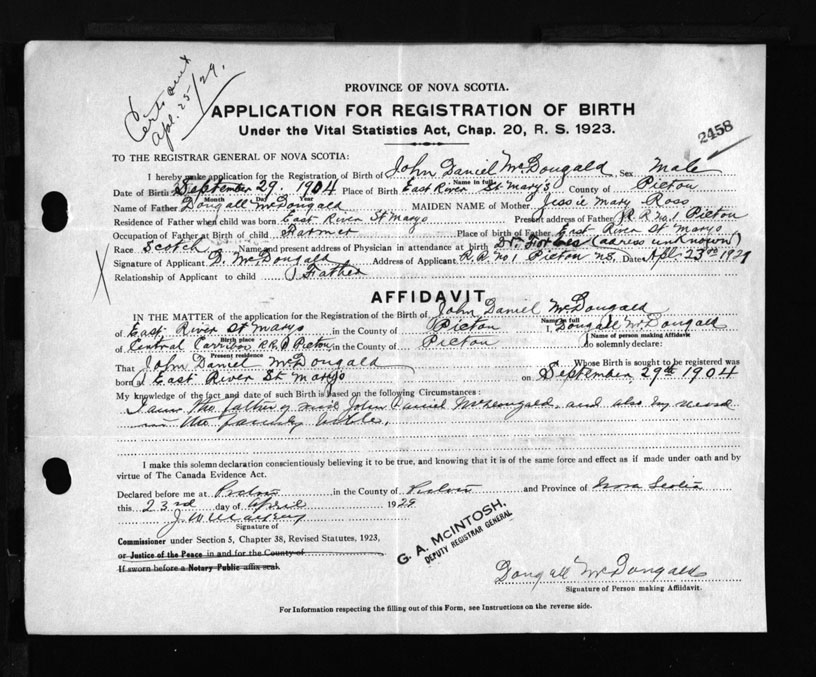 Certs sent
Apl. 25/29.
PROVINCE OF NOVA SCOTIA.
APPLICATION FOR REGISTRATION OF BIRTH
Under the Vital Statistics Act, Chap. 20, R. S. 1923.
2458
TO THE REGISTRAR GENERAL OF NOVA SCOTIA:
I hereby make application for the Registration of Birth of John Daniel McDougald Sex Male
Name in full
Date of Birth September 29. 1904 Place of Birth East River St Mary's County of Pictou
Month Day Year
Name of Father Dougall McDougald MAIDEN NAME of Mother Jessie Mary Ross
Residence of Father when child was born East River St Marys Present address of Father R.R. No. 1 Pictou
Occupation of Father at Birth of child Farmer Place of birth of Father East River St Marys
Race Scotch Name and present address of Physician in attendance at birth Dr. Forbes (adress unknown)
Signature of Applicant D. McDougald Address of Applicant R.R No 1 Pictou N.S. Date Apl. 23rd 1929
Relationship of Applicant to child Father
AFFIDAVIT
IN THE MATTER of the application for the Registration of the Birth of John Daniel McDougald
Name in full
of East River St Marys in the County of Pictou I, Dougall McDougald
Birth place Name of Person making Affidavit
of Central Carribou R.R. 1 Pictou in the County of Pictou do solemnly declare:
Present residence
That John Daniel McDougald Whose Birth is sought to be registered was
born at East River St Marys on September 29th 1904
My knowledge of the fact and date of such Birth is based on the following Circumstances:
I am the father of said John Daniel McDougald, and also by record
in the family bible.
I make this solemn declaration conscientiously believing it to be true, and knowing that it is of the same force and effect as if made under oath and by
virtue of The Canada Evidence Act.
Declared before me at Pictou in the County of Pictou and Province of Nova Scotia
this 23rd day of April 1929
Signature of
Commissioner under Section 5, Chapter 38, Revised Statutes, 1923,
or Justice of the Peace in and for the County of
If sworn before a Notary Public affix seal.
G. A. McINTOSH,
DEPUTY REGISTRAR GENERAL
Dougall McDougald
Signature of Person making Affidavit.
For Information respecting the filling out of this Form, see Instructions on the reverse side.